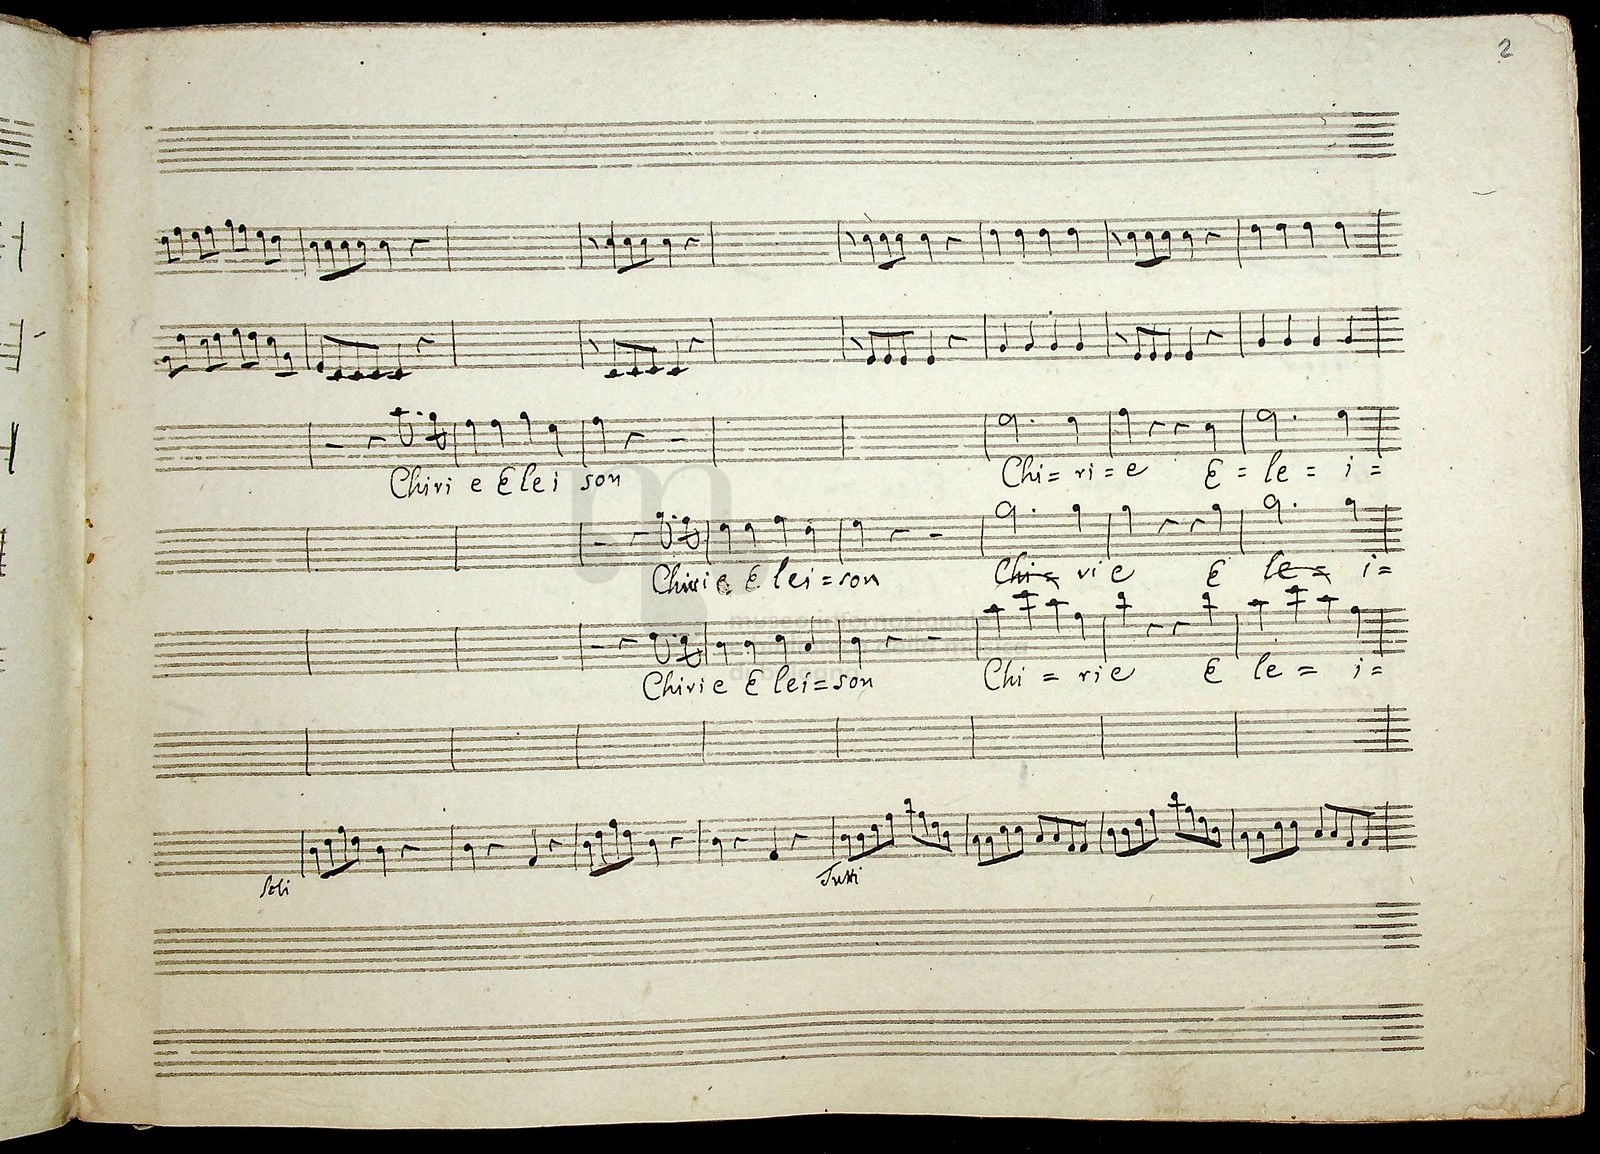 2
Chiri e Elei son Chi= ri=e E = le = i=
Chirie E lei=son Chi= ri e E le= i=
Chirie E lei=son Chi = rie E le = i=
Soli Tutti